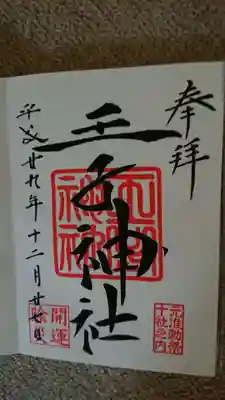 奉拝
元准勅祭
十社之内
王子神社
王子
神社
開運
平成廿九年十二月廿